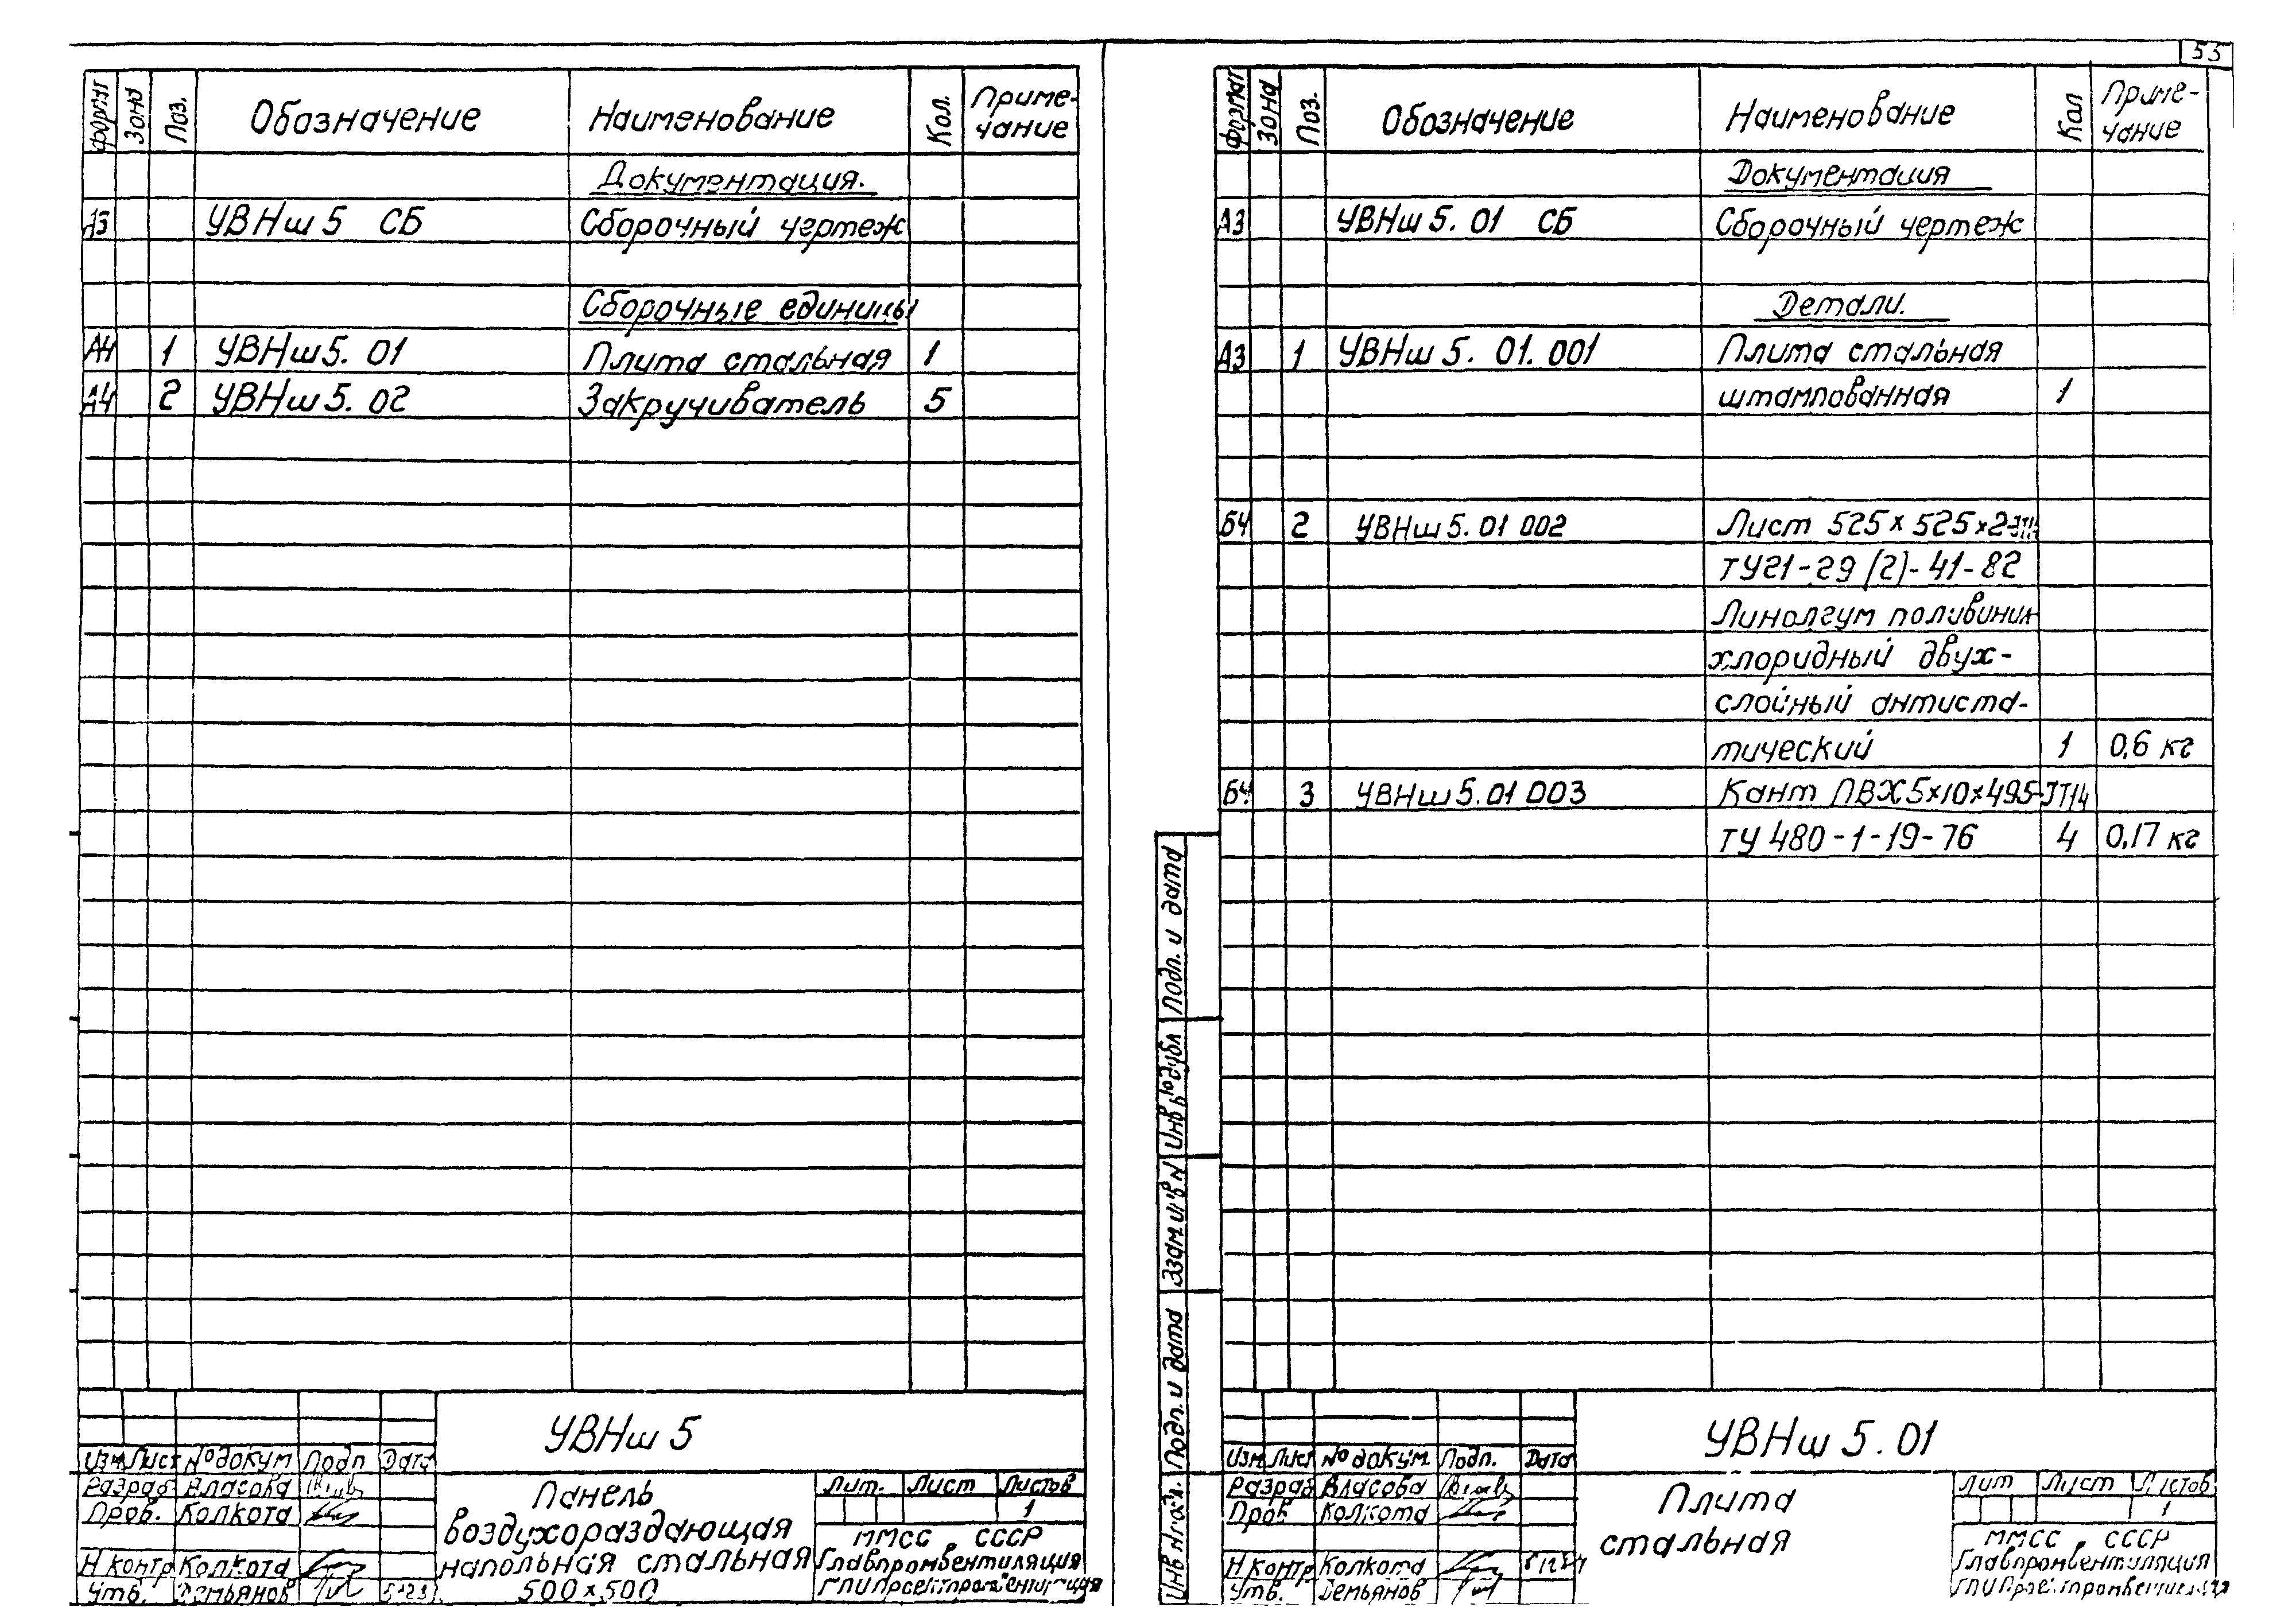 53
Формат Зона Поз. Обозначение Наименование Кол. Приме-
чание
Документация.
А3 УВНш 5 СБ Сборочный чертеж
Сборочные единицы
А4 1 УВНш 5. 01 Плита стальная 1
А4 2 УВНш 5. 02 Закручиватель 5
УВНш 5
Изм Лист № докум Подп Дата
Разраб Власова
Пров. Колкота
Н контр Колкота
Утв. Демьянов
Панель
воздухораздающая
напольная стальная
500×500
Лит. Лист Листов
1
ММСС СССР
Главпромвентиляция
ГПИ Проектпромвентиляция
Формат Зона Поз. Обозначение Наименование Кол Приме-
чание
Документация
А3 УВНш 5. 01 СБ Сборочный чертеж
Детали.
А3 1 УВНш 5. 01. 001 Плита стальная
штампованная 1
БЧ 2 УВНш 5. 01 002 Лист 525 × 525 × 2
ТУ21-29 (2)-41-82
Линолеум поливинил-
хлоридный двух-
слойный антиста-
тический 1 0,6 кг
БЧ 3 УВНш 5. 01 003 Кант ПВХ 5×10×495
ТУ 480-1-19-76 4 0,17 кг
Подп. и дата
Инв № дубл
Взам инв №
Подп. и дата
Инв № подл.
УВНш 5. 01
Изм Лист № докум Подп. Дата
Разраб Власова
Пров Колкота
Н контр Колкота
Утв. Демьянов
Плита
стальная
Лит Лист Листов
1
ММСС СССР
Главпромвентиляция
ГПИ Проектпромвентиляция